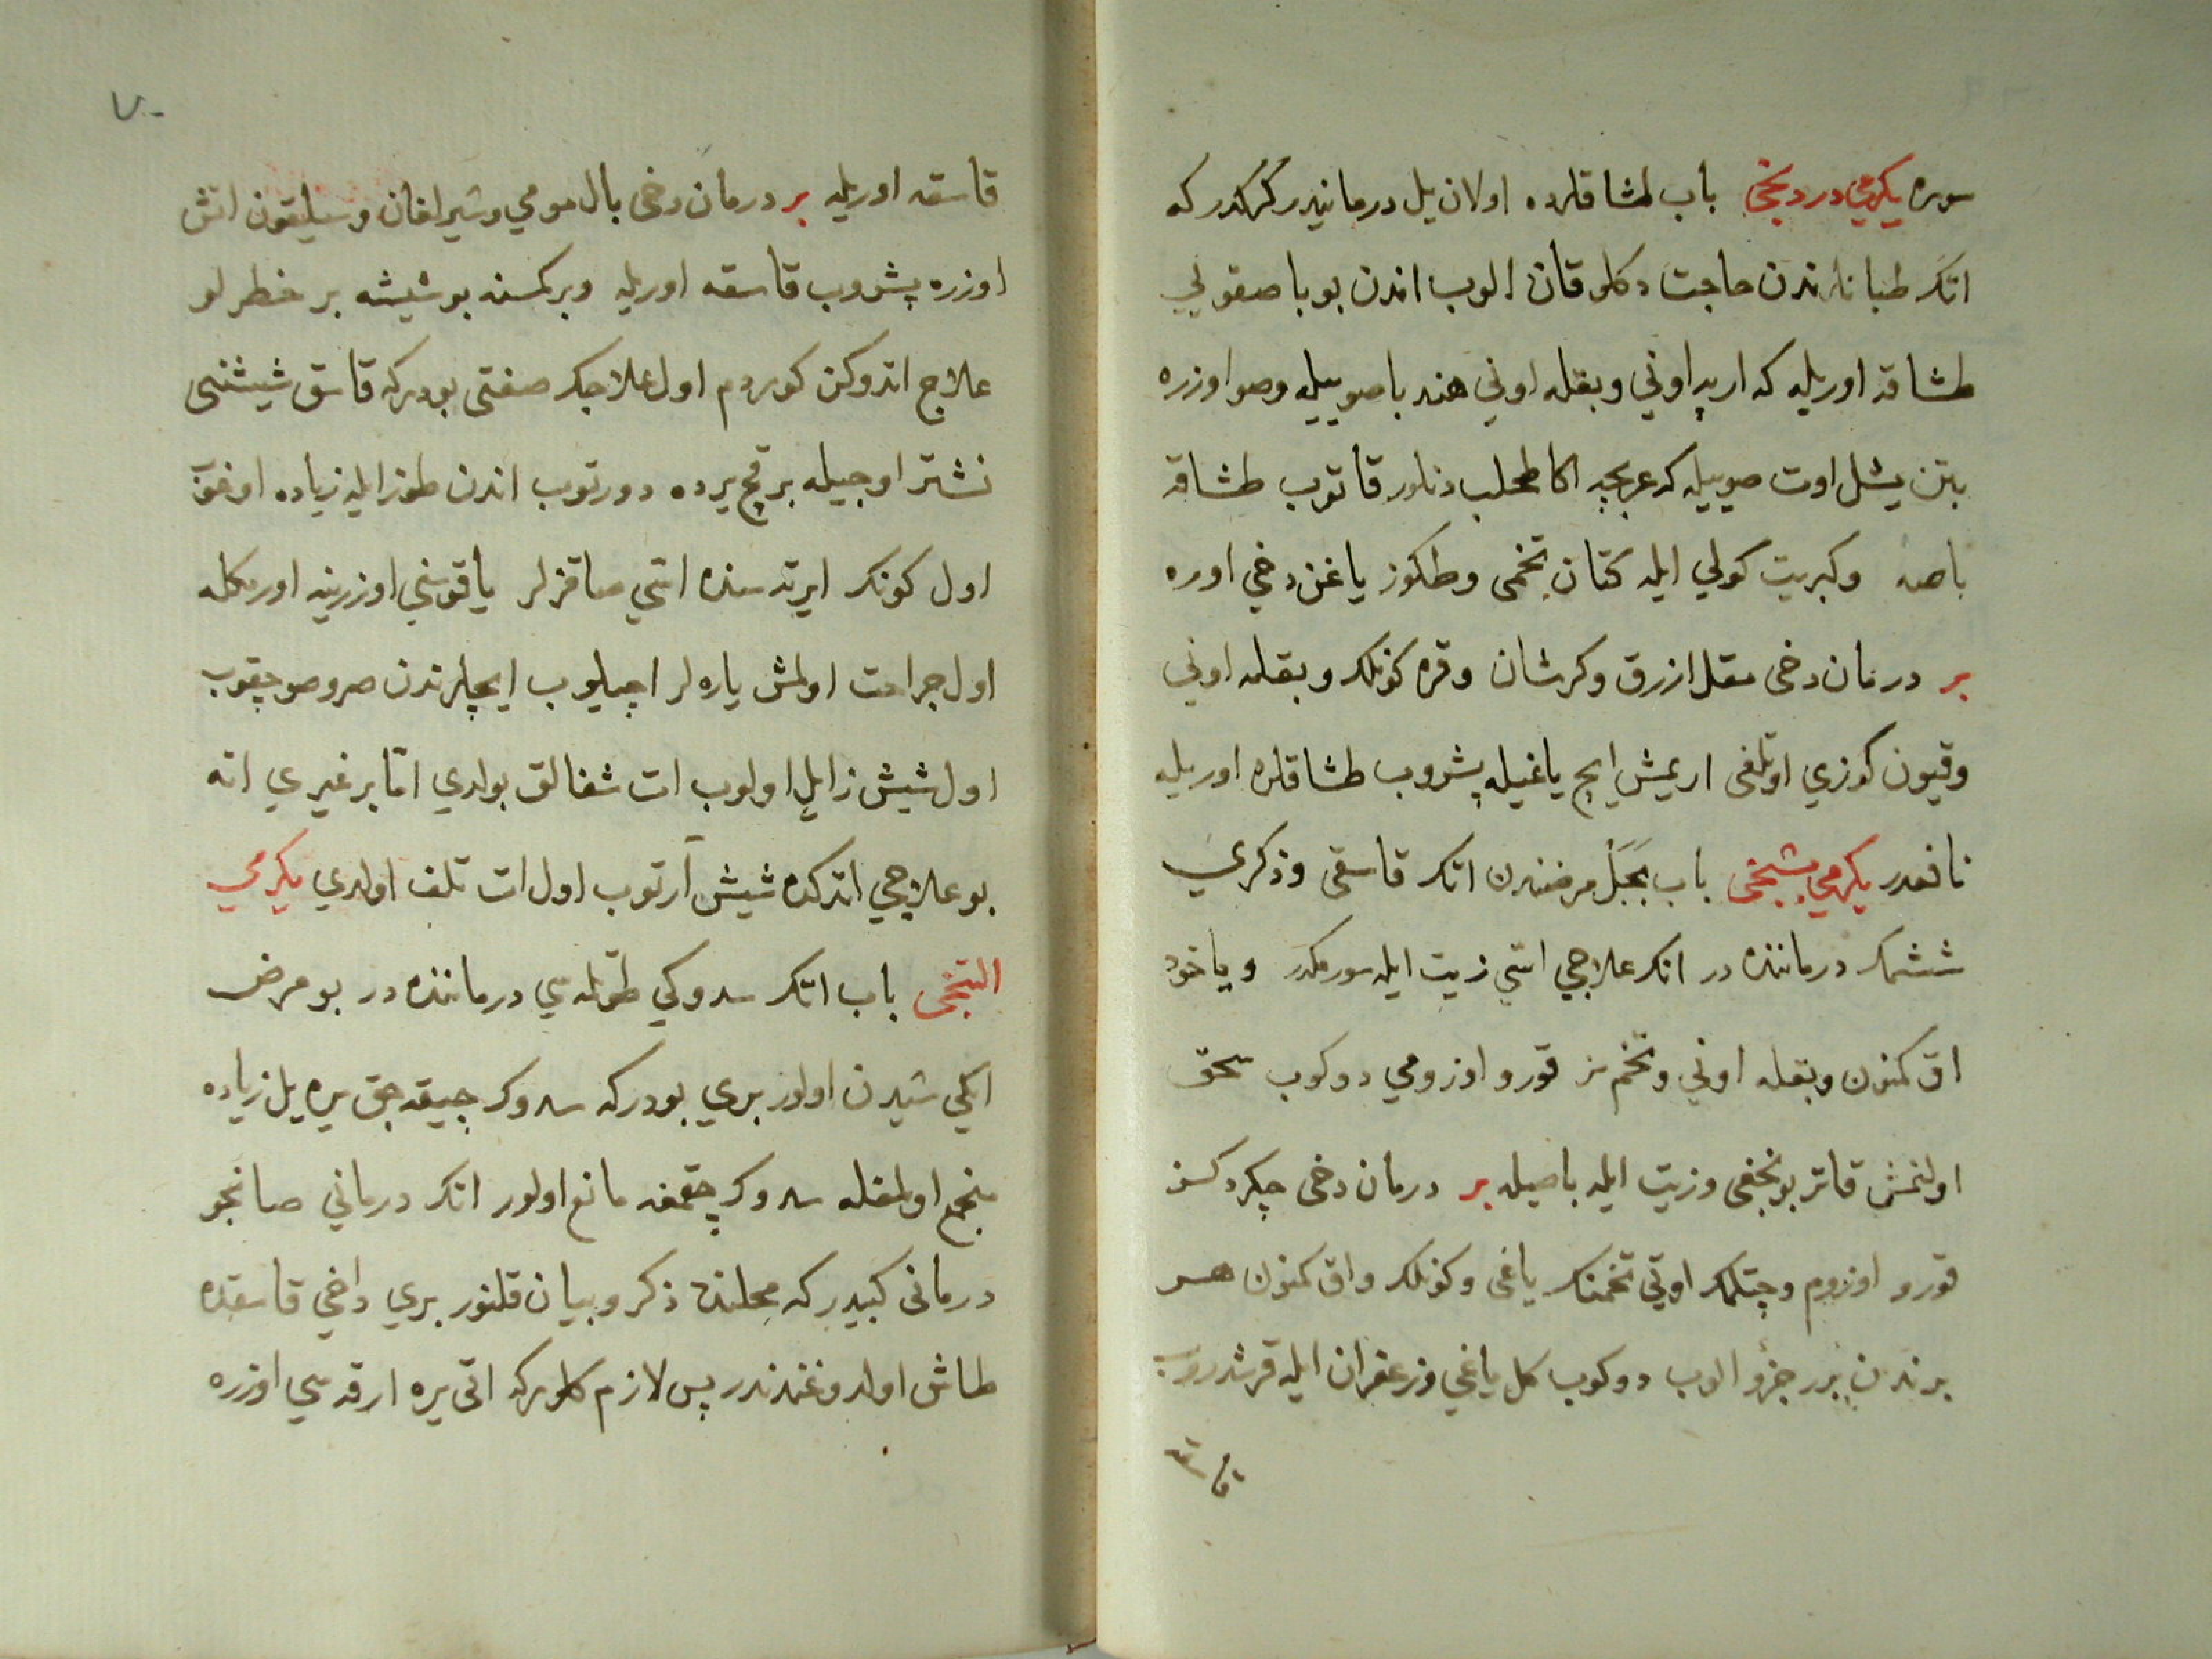 سوره يكرمي دردنجى باب طشاقلرده اولان يل درمانيدر كركدر كه
اتك طبانلرندن حاجت دكلو قان الوب اندن بو ياصقولي
طشاقه اوريله كه ارپه اوني وبقله اوني هندبا صوييله وصو اوزره
بتن يشل اوت صوييله كه عربجه اكا طحلب دنلور قاتوب طشاقه
باصه وكبريت كولي ايله كتان تخمى وطكوز ياغن دخي اوره
بر درمان دخى مقل ازرق وكرشان وقره كونلك وبقله اوني
وقيون كوزي اوتلغى اريمش ايچ ياغيله پشروب طشاقلره اوريله
نافعدر يكرمي بشنجى باب بجل مرضندن اتك قاسقى وذكري
ششمك درماننده در انك علاجي اسّي زيت ايله سورمكدر وياخود
اق كمنون وبقله اوني وتخمسز قورو اوزومي دوكوب سحق
اولنمش قاتر بونجغى وزيت ايله باصيله بر درمان دخى چكردكسز
قورو اوزوم وچتلمك اوتي تخمنك ياغى وكونلك واق كمنون هر
برندن برر جزؤ الوب دوكوب كل ياغي وزعفران ايله قرشدروب
قاسقه
٧٠
قاسقه اوريله بر درمان دخى بال مومي وشيرلغان وسيلقون اتش
اوزره پشروب قاسقه اوريله وبر كمسنه بو شيشه بر خطرلو
علاج اتدوكن كوردم اول علاجك صفتى بودركه قاسق شيشنى
نشتر اوجيله بر قچ يرده دورتوب اندن طوز ايله زياده اوغوب
اول كونك ايرته سنده اسّي صاقزلر ياقوسني اوزرينه اورمكله
اول جراحت اولمش ياره لر اچيلوب ايچلرندن صرو صو چقوب
اول شيش زايل اولوب ات شفالق بولدي امّا بر غيري اته
بو علاجي اتدكده شيش آرتوب اول ات تلف اولدي يكرمي
التنجى باب اتك سدوكي طوتلمه سي درماننده در بو مرض
ايكي شيدن اولور بري بودركه سدوك چيقه جق يره يل زياده
منجمع اولمغله سدوك چقمغه مانع اولور انك درماني صانجو
درمانى كبيدركه محلنده ذكر وبيان قلنور بري داخي قاسقده
طاش اولدوغندندر پس لازم كلوركه اتى يره ارقه سي اوزره